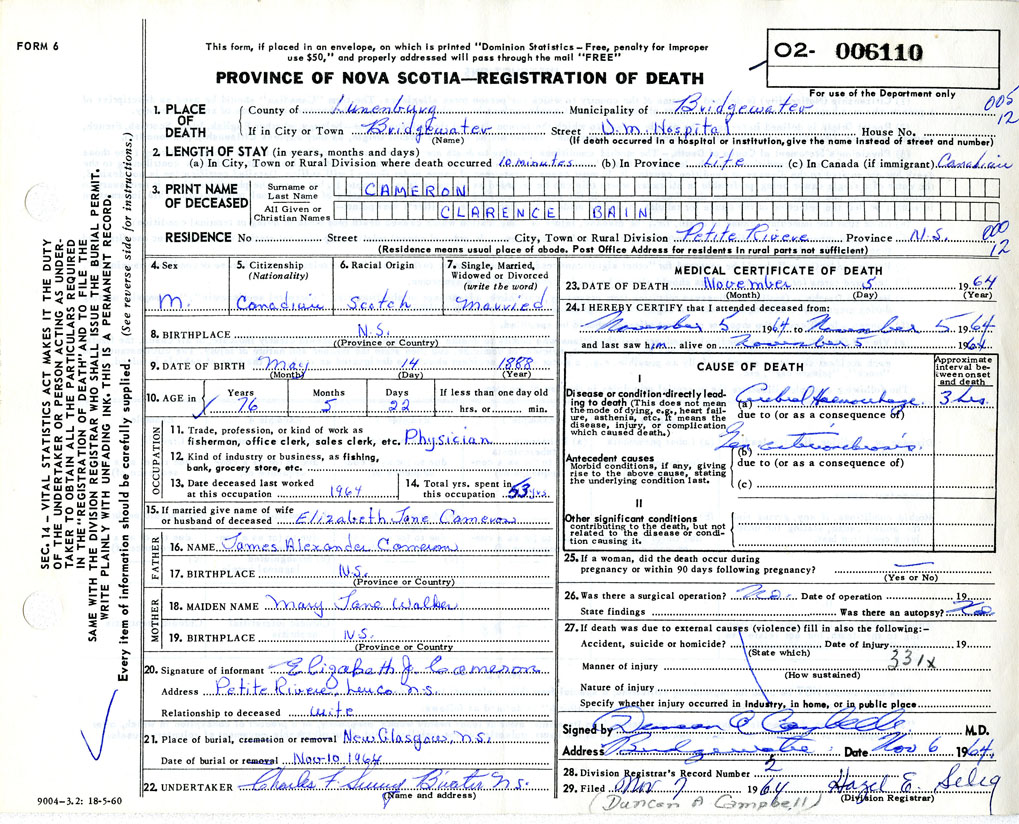 FORM 6
This form, if placed in an envelope, on which is printed "Dominion Statistics – Free, penalty for improper
use $50," and properly addressed will pass through the mail "FREE"
O2- 006110
PROVINCE OF NOVA SCOTIA—REGISTRATION OF DEATH
For use of the Department only
SEC. 14 – VITAL STATISTICS ACT MAKES IT THE DUTY
OF THE UNDERTAKER OR PERSON ACTING AS UNDER-
TAKER TO OBTAIN ALL THE PARTICULARS REQUIRED
IN THE "REGISTRATION OF DEATH" AND TO FILE THE
SAME WITH THE DIVISION REGISTRAR WHO SHALL ISSUE THE BURIAL PERMIT.
WRITE PLAINLY WITH UNFADING INK. THIS IS A PERMANENT RECORD.
Every item of information should be carefully supplied. (See reverse side for instructions.)
1. PLACE OF DEATH
County of Lunenburg Municipality of Bridgewater 005
12
If in City or Town Bridgewater Street D.M. Hospital House No.
(Name) (If death occurred in a hospital or institution, give the name instead of street and number)
2. LENGTH OF STAY (in years, months and days)
(a) In City, Town or Rural Division where death occurred 10 minutes (b) In Province Life (c) In Canada (if immigrant) Canadian
3. PRINT NAME OF DECEASED
Surname or Last Name CAMERON
All Given or Christian Names CLARENCE BAIN
RESIDENCE No Street City, Town or Rural Division Petite Riviere Province N.S. 000
12
(Residence means usual place of abode. Post Office Address for residents in rural parts not sufficient)
4. Sex M.
5. Citizenship (Nationality) Canadian
6. Racial Origin Scotch
7. Single, Married, Widowed or Divorced (write the word) Married
8. BIRTHPLACE N.S.
(Province or Country)
9. DATE OF BIRTH May 14 1888
(Month) (Day) (Year)
10. AGE in Years 76 Months 5 Days 22 If less than one day old hrs. or min.
OCCUPATION
11. Trade, profession, or kind of work as
fisherman, office clerk, sales clerk, etc. Physician
12. Kind of industry or business, as fishing,
bank, grocery store, etc.
13. Date deceased last worked
at this occupation 1964
14. Total yrs. spent in
this occupation 53 yrs.
15. If married give name of wife
or husband of deceased Elizabeth Jane Cameron
FATHER
16. NAME James Alexander Cameron
17. BIRTHPLACE N.S.
(Province or Country)
MOTHER
18. MAIDEN NAME Mary Jane Walker
19. BIRTHPLACE N.S.
(Province or Country
20. Signature of informant Elizabeth J Cameron
Address Petite Riviere, Lun co. N.S.
Relationship to deceased wife
21. Place of burial, cremation or removal New Glasgow, N.S.
Date of burial or removal Nov 10 1964
22. UNDERTAKER Charles F B'water N.S.
(Name and address)
9004-3.2: 18-5-60
MEDICAL CERTIFICATE OF DEATH
23. DATE OF DEATH November 5 1964
(Month) (Day) (Year)
24. I HEREBY CERTIFY that I attended deceased from:
November 5 1964 to November 5 1964
and last saw him alive on November 5 1964
CAUSE OF DEATH
Approximate interval between onset and death
I
Disease or condition-directly lead-
ing to death (This does not mean
the mode of dying, e.g., heart fail-
ure, asthenia, etc. It means the
disease, injury, or complication
which caused death.)
(a) Cerebral Haemorrhage 3 hrs.
due to (or as a consequence of)
Gen. arteriosclerosis
(b)
due to (or as a consequence of)
(c)
Antecedent causes
Morbid conditions, if any, giving
rise to the above cause, stating
the underlying condition last.
II
Other significant conditions
contributing to the death, but not
related to the disease or condi-
tion causing it.
25. If a woman, did the death occur during
pregnancy or within 90 days following pregnancy?
(Yes or No)
26. Was there a surgical operation? No. Date of operation 19
State findings Was there an autopsy? No
27. If death was due to external causes (violence) fill in also the following:–
Accident, suicide or homicide? Date of injury 19
(State which) 331x
Manner of injury
(How sustained)
Nature of injury
Specify whether injury occurred in Industry, in home, or in public place
Signed by Duncan A Campbell M.D.
Address Bridgewater Date Nov 6 1964
28. Division Registrar's Record Number 2
29. Filed Nov 7 1964 Hazel E. Selig
(Duncan A Campbell) (Division Registrar)